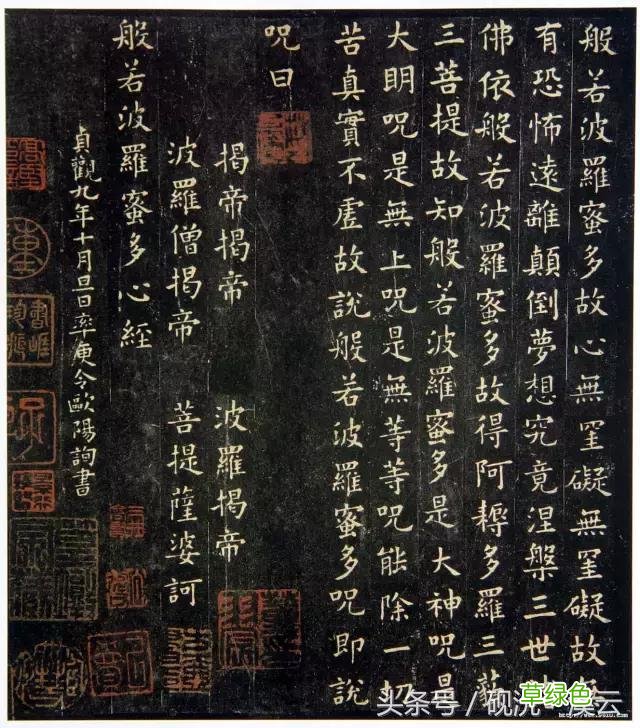 般若波羅蜜多故心無罣礙無罣礙故
有恐怖遠離顛倒夢想究竟涅槃三世
佛依般若波羅蜜多故得阿耨多羅三藐
三菩提故知般若波羅蜜多是大神呪是
大明呪是無上呪是無等等呪能除一切
苦真實不虛故說般若波羅蜜多呪即說
呪曰
揭帝揭帝 波羅揭帝
波羅僧揭帝 菩提薩婆訶
般若波羅蜜多心經
貞觀九年十月旦日率更令歐陽詢書
头条号 / 砚洗
草绿色